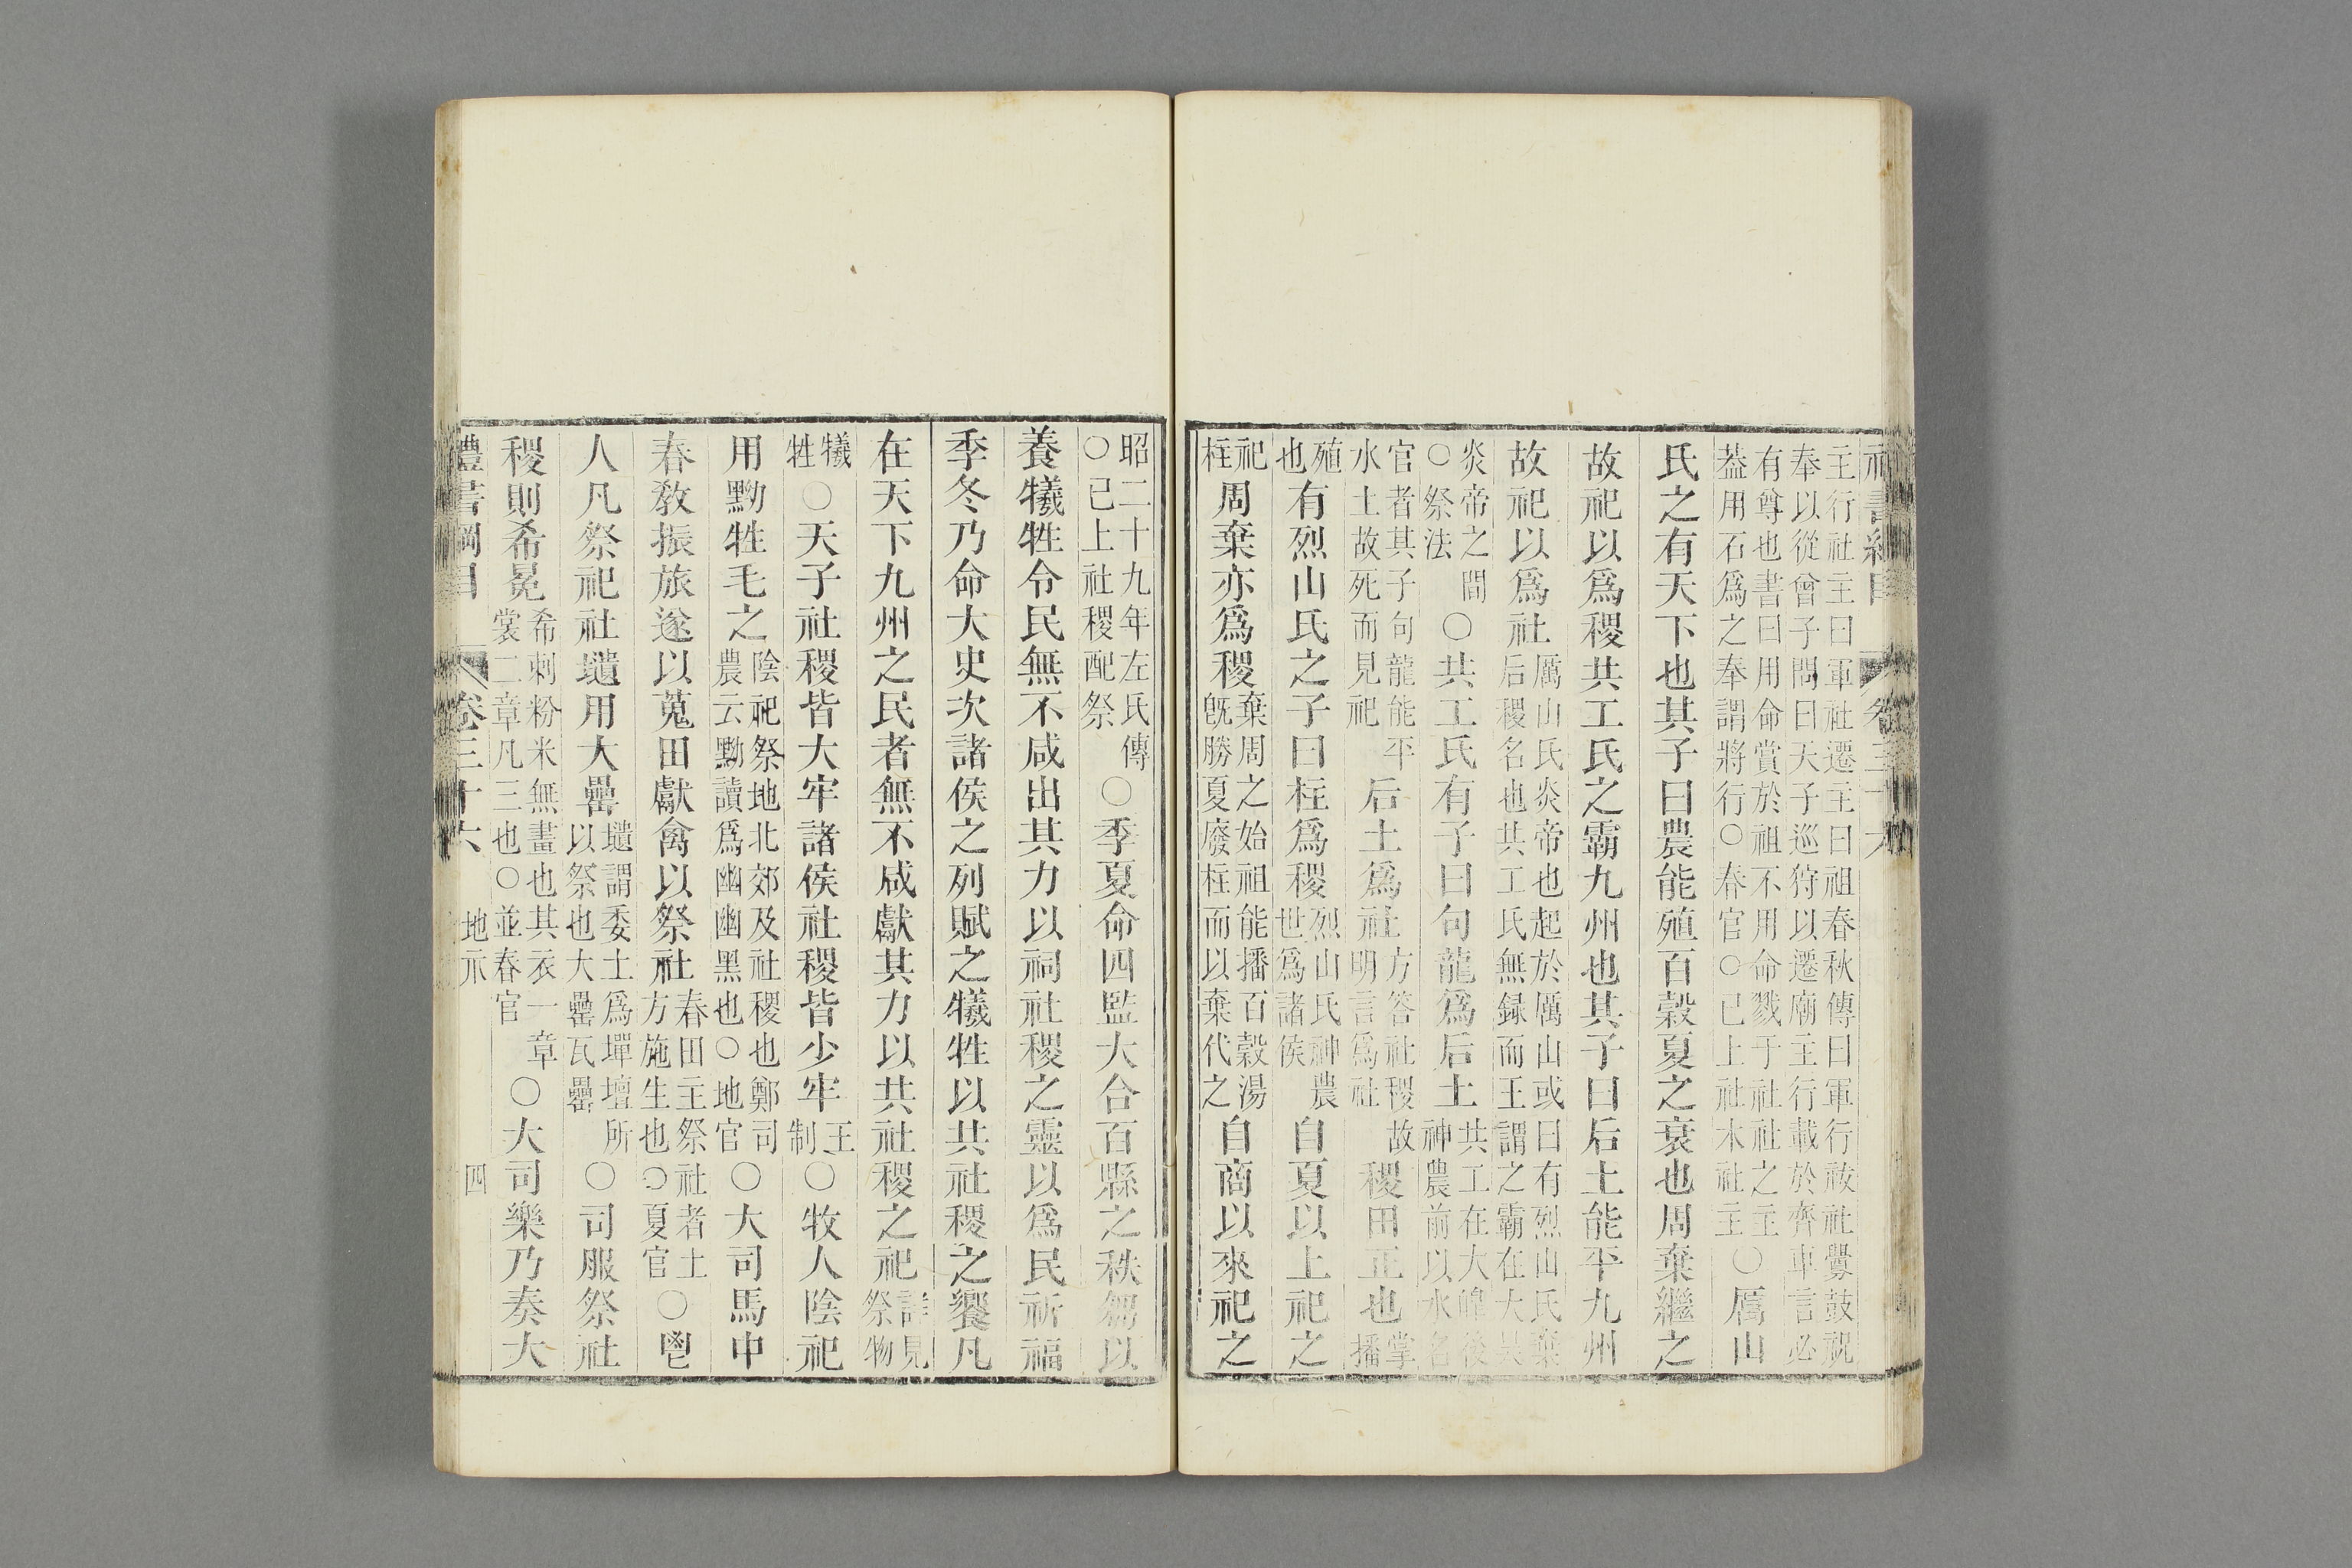 主行社主曰軍社遷主曰祖春秋傳曰軍行祓社釁鼓祝
奉以從曾子問曰天子巡狩以遷廟主行載於齊車言必
有尊也書曰用命賞於祖不用命戮于社社之主
葢用石爲之奉謂將行○春官○已上社木社主○厲山
氏之有天下也其子曰農能殖百穀夏之衰也周棄繼之
故祀以爲稷共工氏之霸九州也其子曰后土能平九州
故祀以爲社厲山氏炎帝也起於厲山或曰有烈山氏棄
后稷名也共工氏無録而王謂之霸在大昊
炎帝之間
○祭法○共工氏有子曰句龍爲后土共工在大皥後
神農前以水名
官者其子句龍能平
水土故死而見祀后土爲社方答社稷故
明言爲社稷田正也掌
播
殖
也有烈山氏之子曰柱爲稷烈山氏神農
世爲諸侯自夏以上祀之
祀
柱周棄亦爲稷棄周之始祖能播百穀湯
旣勝夏廢柱而以棄代之自商以來祀之
昭二十九年左氏傳
○已上社稷配祭○季夏命四監大合百縣之秩芻以
養犧牲令民無不咸出其力以祠社稷之靈以爲民祈福
季冬乃命大史次諸侯之列賦之犧牲以共社稷之饗凡
在天下九州之民者無不咸獻其力以共社稷之祀詳見
祭物
犧
牲○天子社稷皆大牢諸侯社稷皆少牢王
制○牧人陰祀
用黝牲毛之陰祀祭地北郊及社稷也鄭司
農云黝讀爲幽幽黑也○地官○大司馬中
春教振旅遂以蒐田獻禽以祭社春田主祭社者土
方施生也○夏官○鬯
人凡祭祀社壝用大罍壝謂委土爲墠壇所
以祭也大罍瓦罍○司服祭社
稷則希冕希刺粉米無畫也其衣一章
裳二章凡三也○並春官○大司樂乃奏大
禮書綱目 卷三十六 地示 四